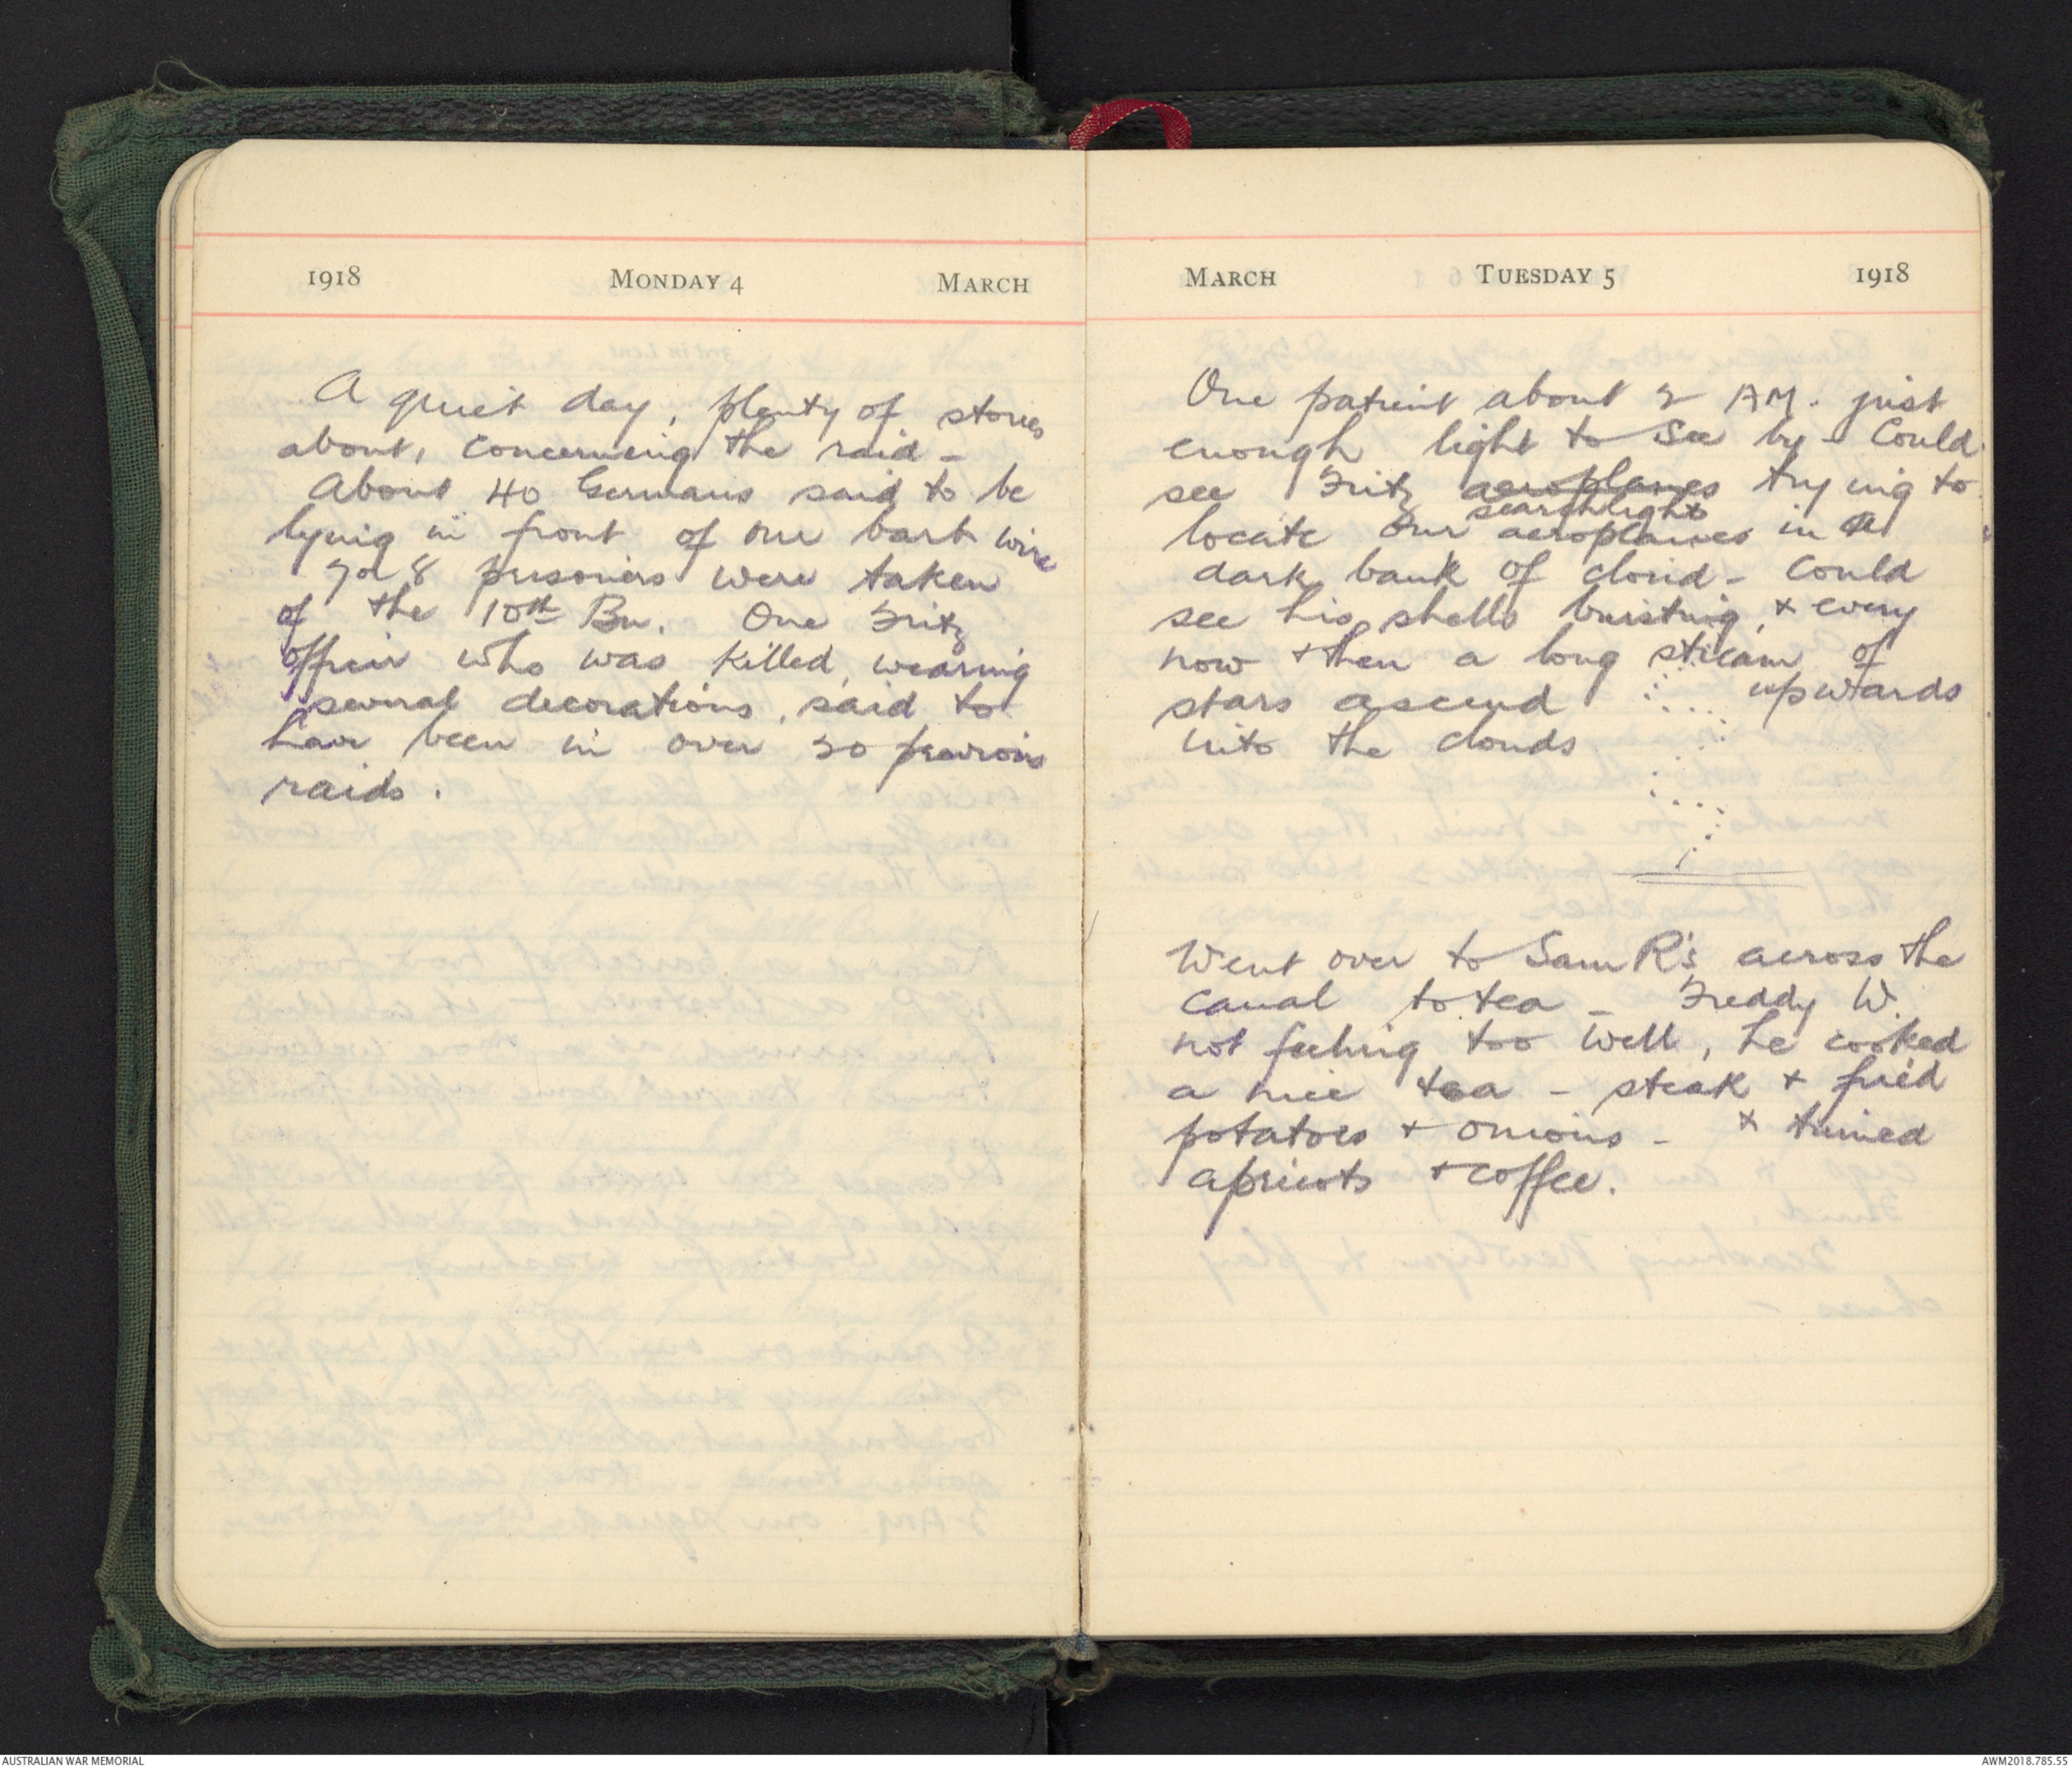 1918 MONDAY 4 MARCH
A quiet day, plenty of stories
about, concerning the raid -
About 40 Germans said to be
lying in front of our barb wire
7 or 8 prisoners were taken
of the 10th Bn. One Fritz
officer who was killed, wearing
several decorations, said to
have been in over 30 previous
raids.
MARCH TUESDAY 5 1918
One patient about 2 AM. just
enough light to see by - Could
see Fritz aeroplanes trying to
searchlight
locate our aeroplanes in a
dark bank of cloud - Could
see his shells bursting, & every
now & then a long stream of
stars ascend upwards
into the clouds
Went over to Sam R's across the
canal to tea - Freddy W.
not feeling too well, he cooked
a nice tea - steak & fried
potatoes & onions - & tinned
apricots & coffee.
AUSTRALIAN WAR MEMORIAL AWM2018.785.55